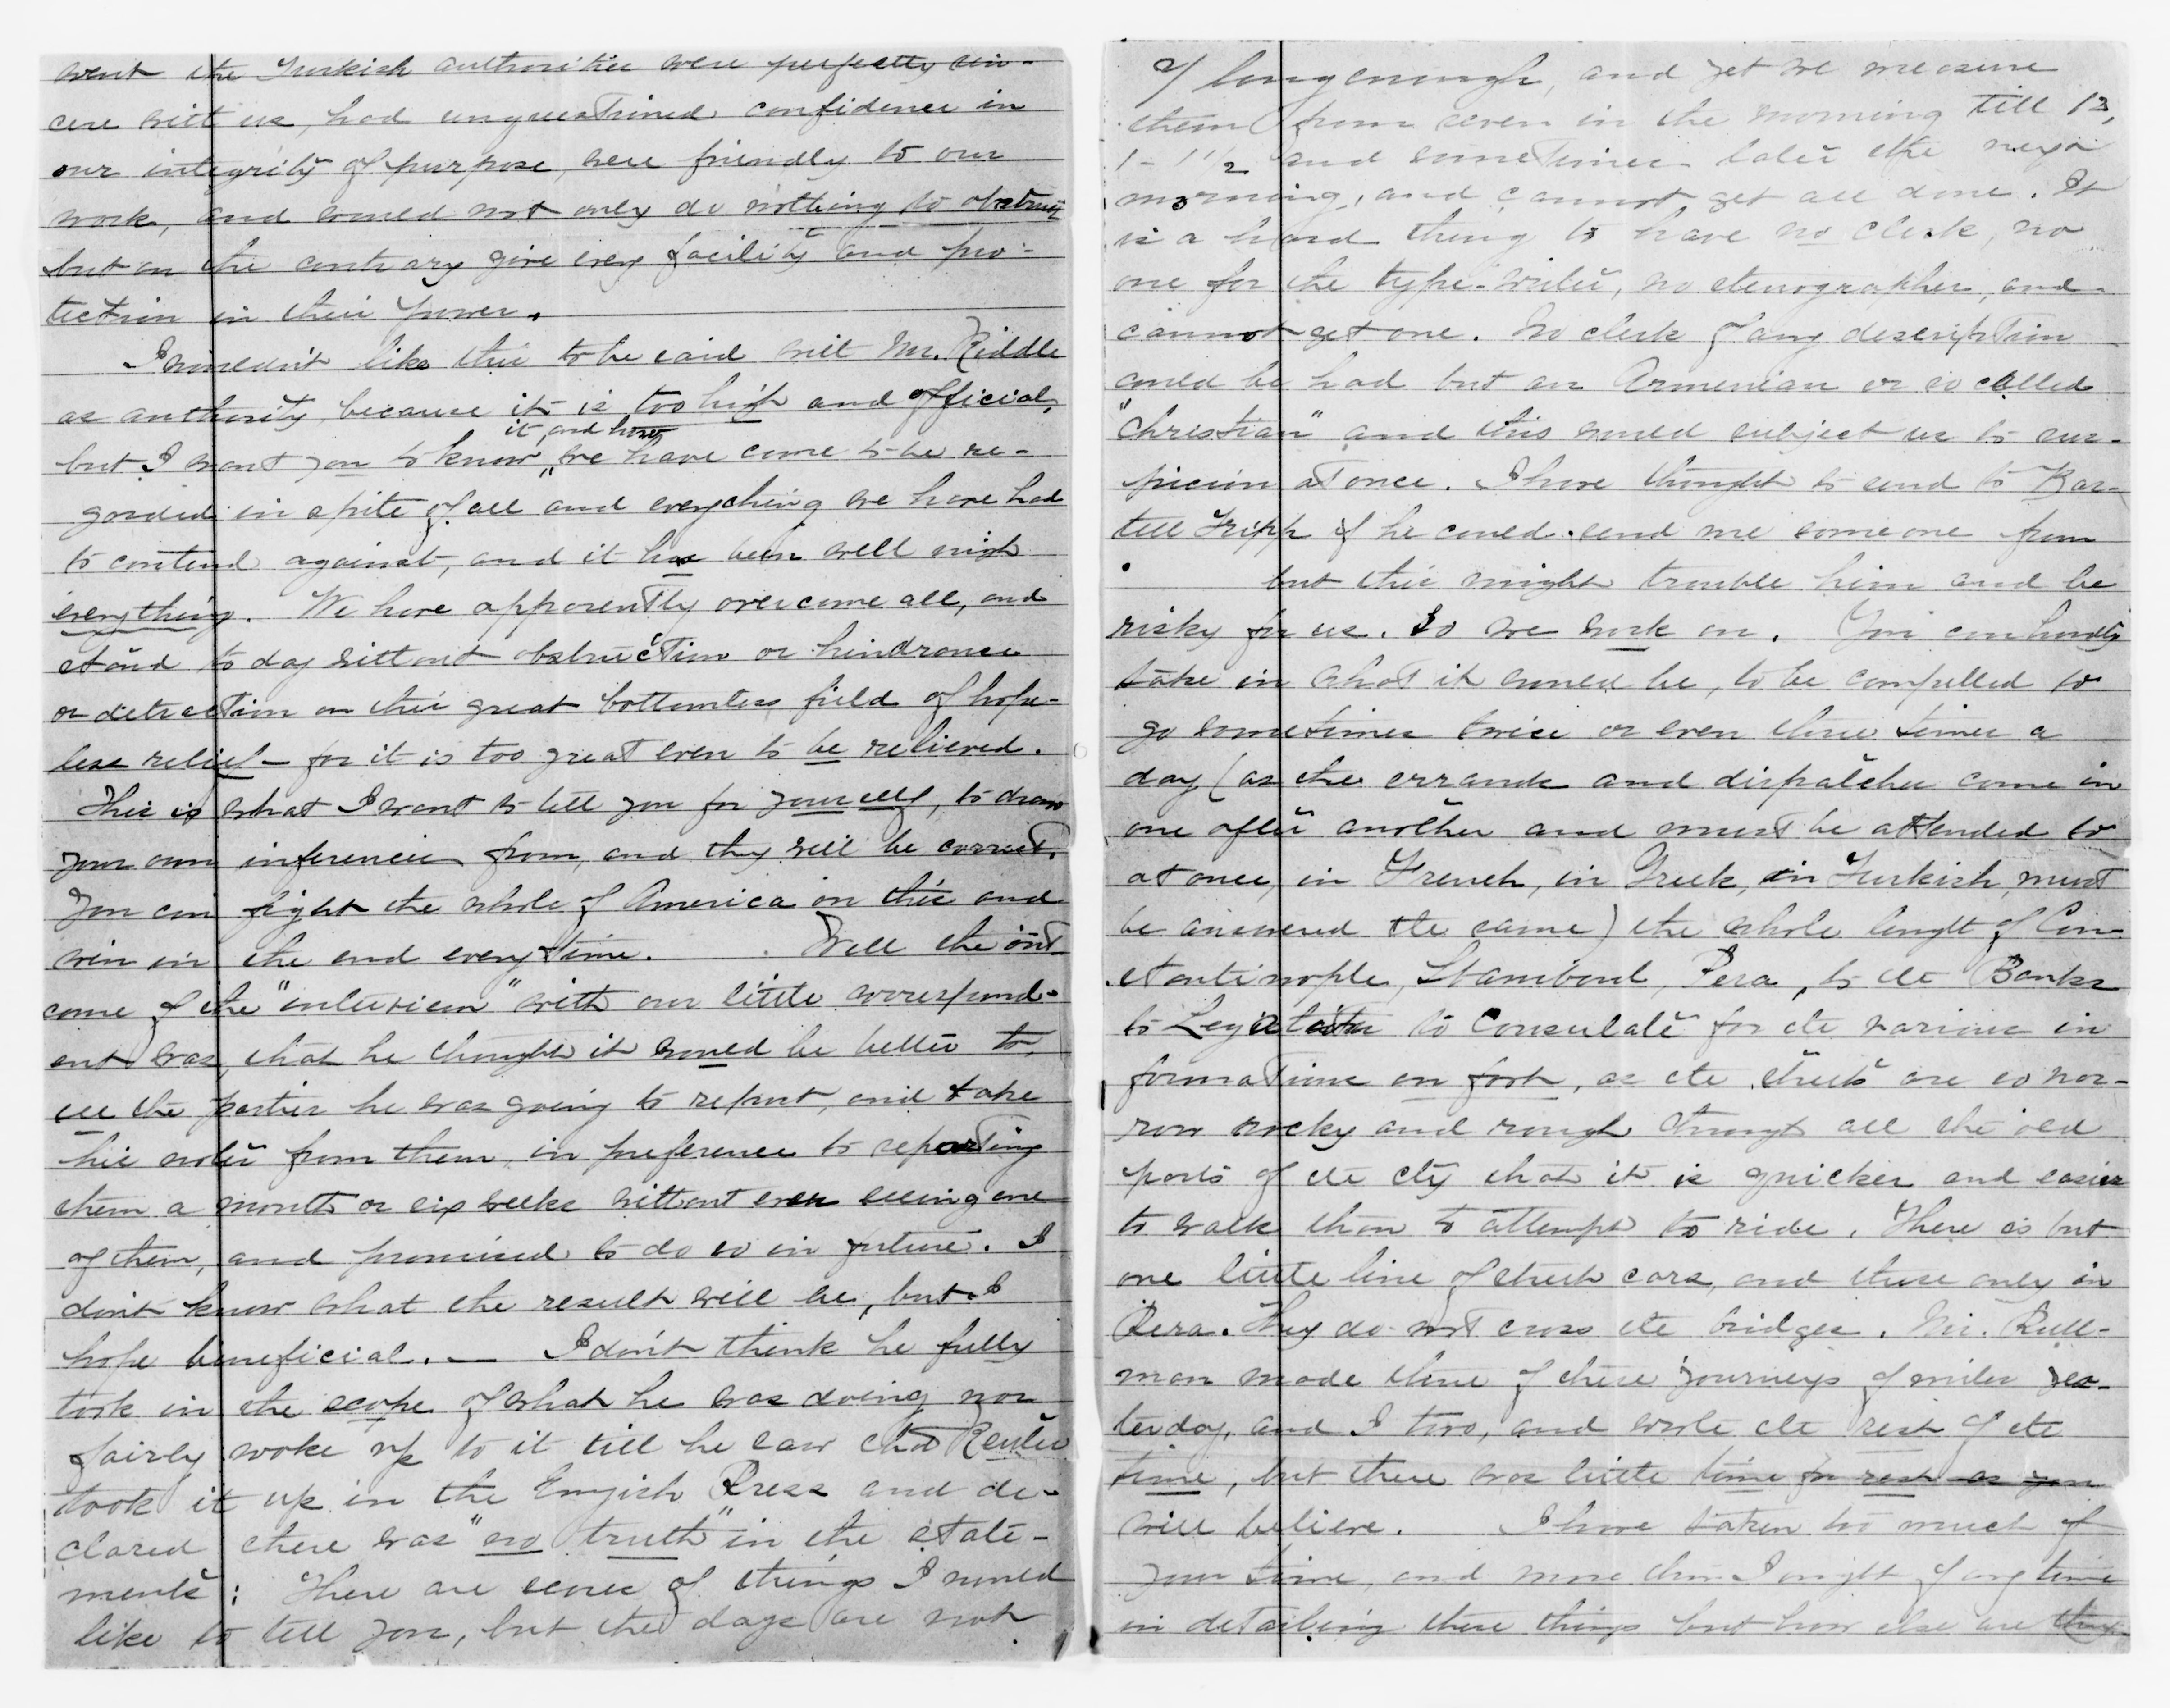 went the Turkish authorities were perfectly sin-
cere with us, had unquestioned confidence in
our integrity of purpose, were friendly to our
work, and would not only do nothing to obstruct
but on the contrary give every facility and pro-
tection in their power.
I wouldn't like this to be said with Mr. Riddle
as authority, because it is too high and official,
it, and how
but I want you to know we have come to be re-
garded in spite of all and everything we have had
to contend against, and it has been well nigh
everything. We have apparently overcome all, and
stand to day without obstruction or hindrance
or detraction on this great bottomless field of hope-
less relief - for it is too great even to be relieved.
This is what I want to tell you for yourself, to draw
your own inferences from, and they will be correct.
You can fight the whole of America on this and
win in the end every time. Well the out
come of the "interview" with our little correspond-
ent was, that he thought it would be better to
see the parties he was going to report, and take
his notes from them, in preference to reporting
them a month or six weeks without even seeing one
of them, and promised to do so in future. I
don't know what the result will be, but I
hope beneficial. — I don't think he fully
took in the scope of what he was doing nor
fairly woke up to it till he saw that Reuter
took it up in the English Press and de-
clared there was "no truth" in the state-
ments: There are scores of things I would
like to tell you, but the days are not
long enough, and yet we measure
them from seven in the morning till 12,
1 - 1 1/2 and sometimes later the next
morning, and cannot get all done. It
is a hard thing to have no clerk, no
one for the type-writer, no stenographer, and
cannot get one. No clerk of any description
could be had but an Armenian or so called
"Christian" and this would subject us to sus-
picion at once. I have thought to send to Bar-
tell Tripp if he could send me someone from
but this might trouble him and be
risky for us. So we work on. You can hardly
take in what it would be, to be compelled to
go sometimes twice or even three times a
day (as the errands and dispatches come in
one after another and must be attended to
at once, in French, in Greek, in Turkish, must
be answered the same) the whole length of Con-
stantinople, Stamboul, Pera, to the Banks
to Legation to Consulate for the various in
formations on foot, as the streets are so nar-
row rocky and rough through all the old
parts of the city that it is quicker and easier
to walk than to attempt to ride. There is but
one little line of street cars, and those only in
Pera. They do not cross the bridges. Mr. Pull-
man made three of these journeys of miles yes-
terday, and I two, and wrote the rest of the
time, but there was little time for rest as you
will believe. I have taken too much of
your time, and more than I ought of my time
in detailing these things but how else are they